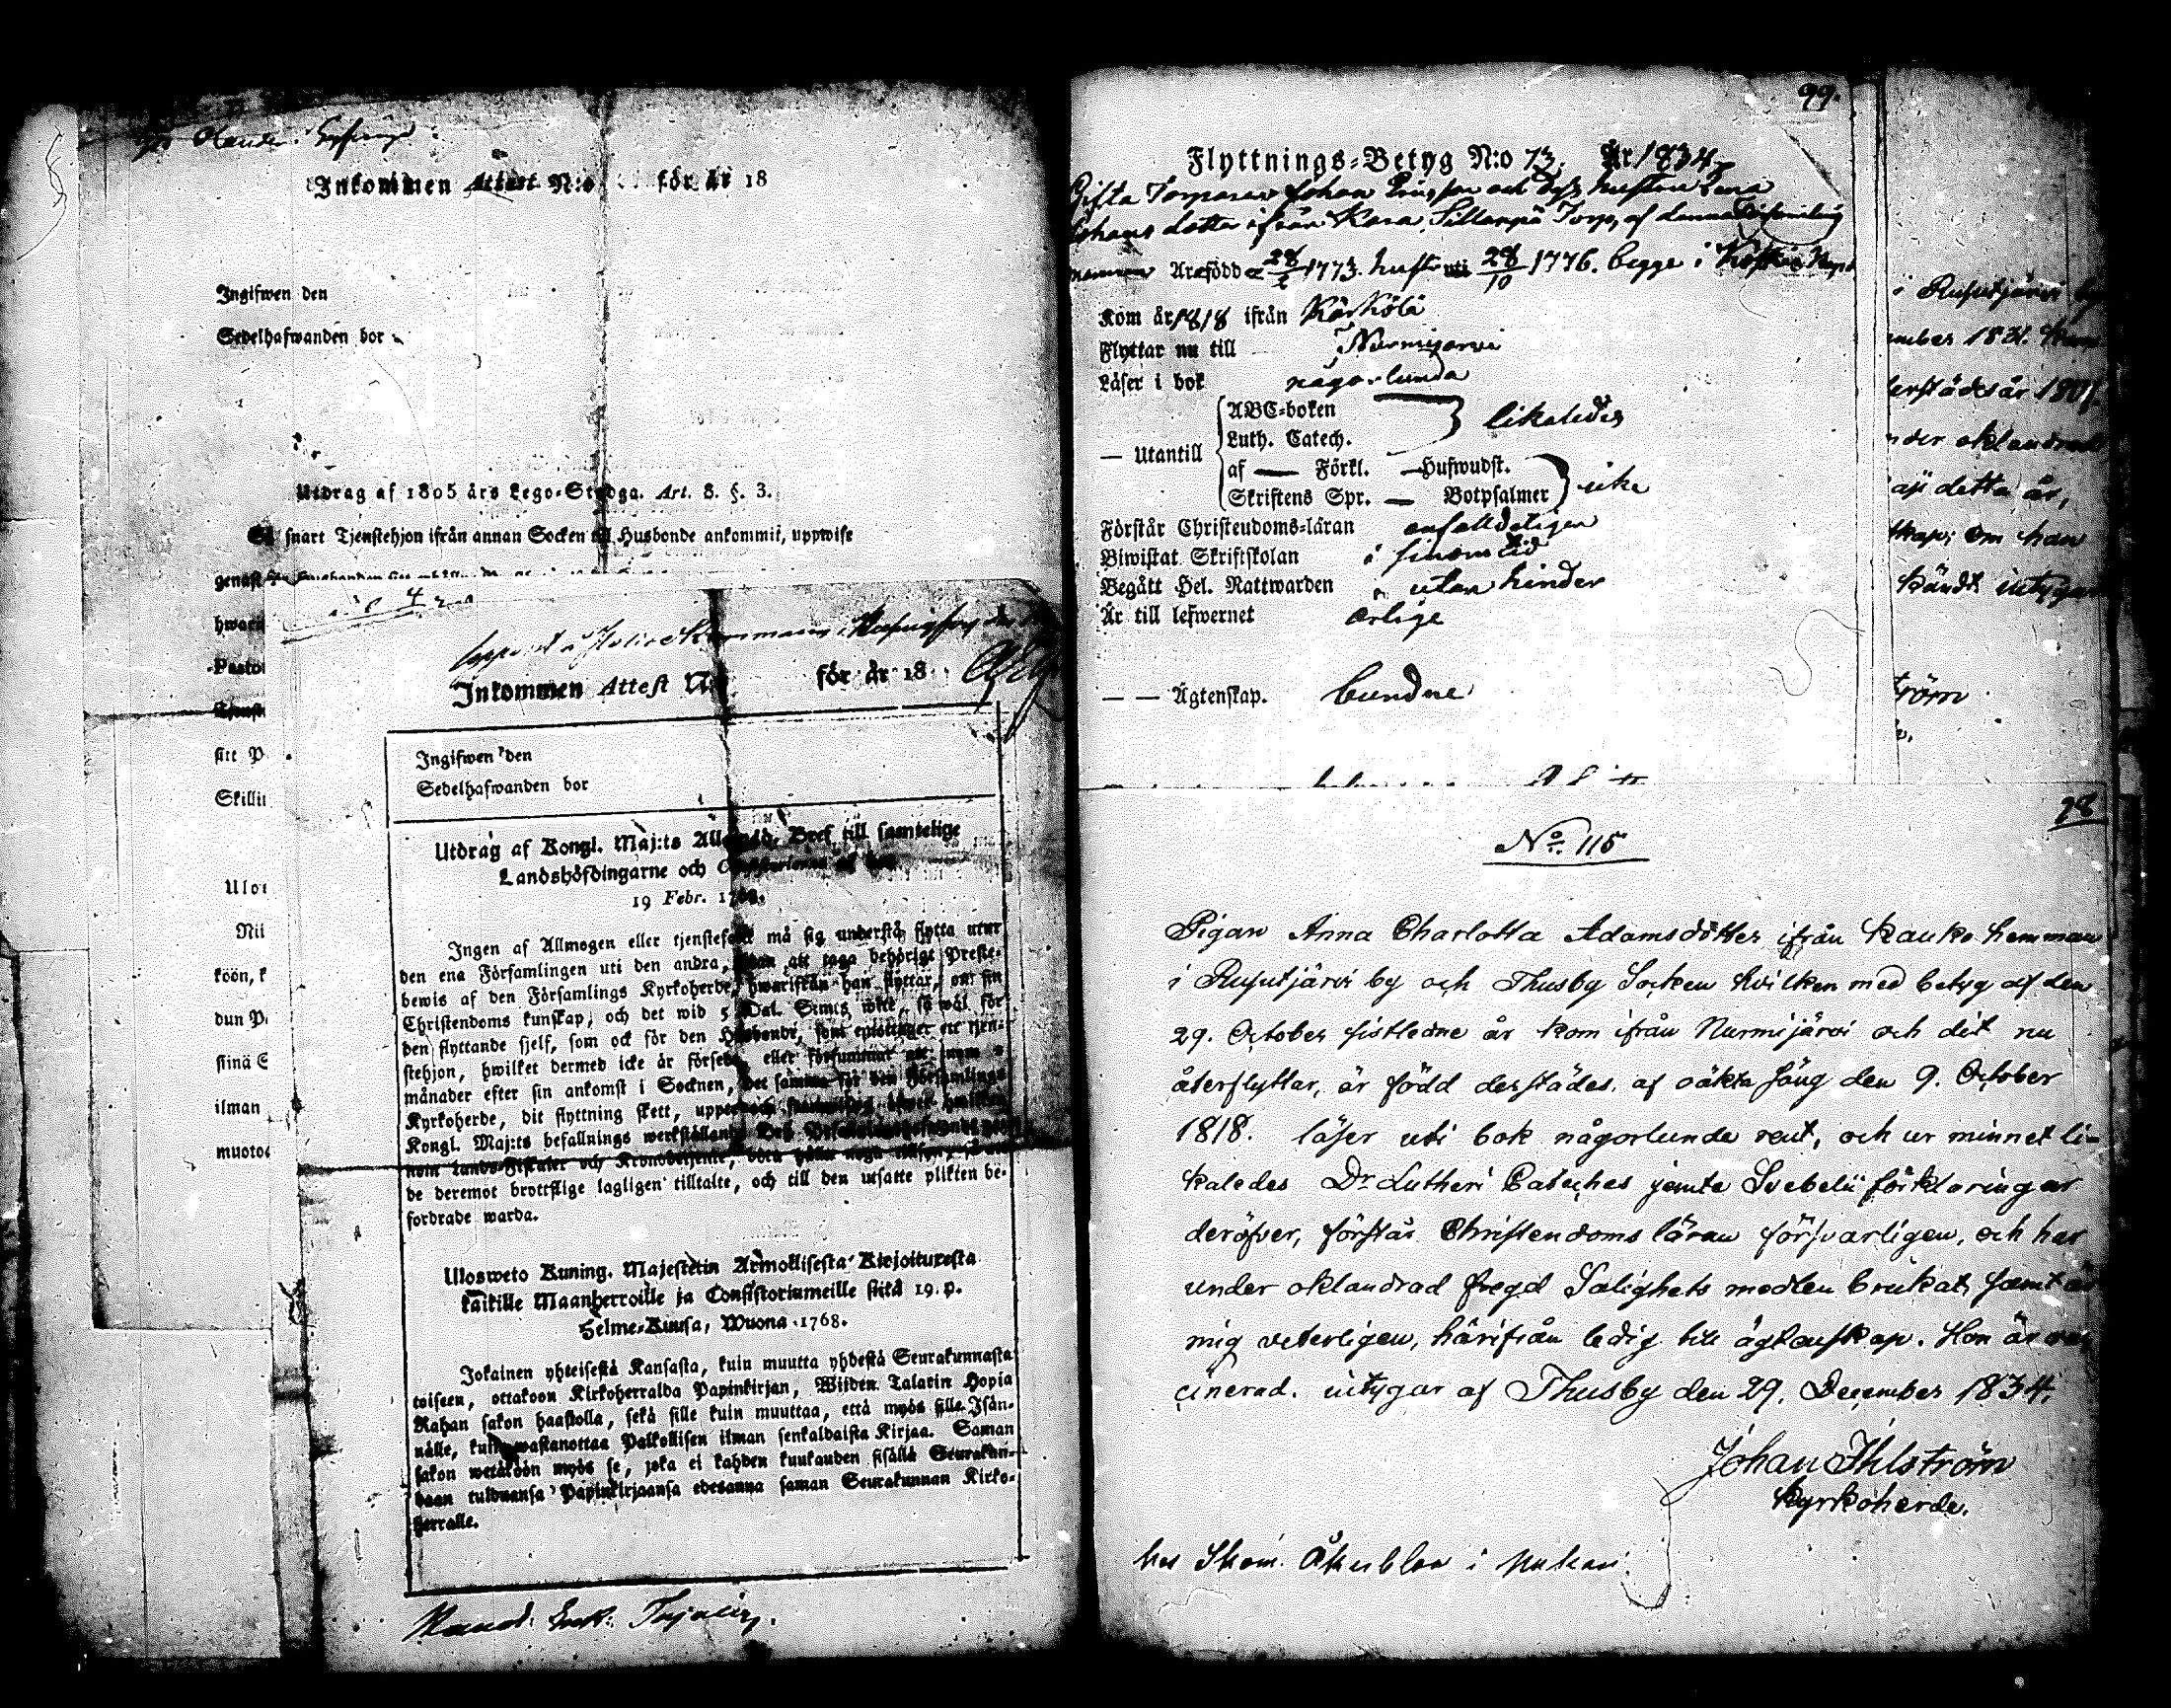 Inkommen Attest N:o för år 18
Ingifwen den
Sedelhafwanden bor
Utdrag af 1805 års Lego-Stadga. Art. 8. §. 3.
Så snart Tjenstehjon ifrån annan Socken till Husbonde ankommit, uppwise
genast
hwar
Pasto
Tjenst
sitt P
Skillin
Ulo
Nil
köön, k
dun P
stinä S
ilman
muoto
Inkommen Attest N för år 18
Ingifwen den
Sedelhafwanden bor
Utdrag af Kongl. Maj:ts Allernåd. Bref till samtelige
Landshöfdingarne och
19 Febr. 1768.
Ingen af Allmogen eller tjenstefolk må sig understå flytta utur
den ena Församlingen uti den andra, utan att taga behörigt Preste-
bewis af den Församlings Kyrkoherde, hwarifrån han flyttar, om sin
Christendoms kunskap, och det wid 5 Dal. S:mts wite, så wäl för
den flyttande sjelf, som ock för den Husbonde, som emottager ett tjen-
stehjon, hwilket dermed icke är försedt, eller försummar att inom 2
månader efter sin ankomst i Socknen, det samma för den Församlings
Kyrkoherde, dit flyttning skett, uppte och
Kongl. Maj:ts befallnings werkställande
nom Lands-Fiskaler och Kronobetjente, böra hålla noga
de deremot brottslige lagligen tilltalte, och till den utsatte plikten be-
fordrade warda.
Ulosweto Kuning. Majestetin Armollisesta Kirjoituxesta
kaikille Maanherroille ja Consistoriumeille siitä 19. p.
Helme-Kuusa, Wuona 1768.
Jokainen yhteisestä Kansasta, kuin muutta yhdestä Seurakunnasta
toiseen, ottakoon Kirkoherralda Papinkirjan, Wiiden Talarin Hopia
Rahan sakon haastolla, sekä sille kuin muuttaa, että myös sille Isän-
nälle, kuin wastanottaa Palkollisen ilman senkaldaista Kirjaa. Saman
sakon wetäköön myös se, joka ei kahden kuukauden sisällä Seurakun-
daan tulduansa Papinkirjaansa edesanna saman Seurakunnan Kirko-
herralle.
99.
Flyttnings-Betyg N:o 73. År 1834
Gifta Torparen Johan Ericsson och dess hustru Lena
Johans dotter ifrån Kara Sillanpä Torp, af denna Församling
Är född 28/2 1773. hustr 28/10 1776. begge i
Kom år 1818 ifrån Kärkölä
Flyttar nu till Nurmijärvi
Läser i bok någorlunda
— Utantill
ABC-boken
Luth. Catech. likaledes
af — Förkl. — Hufwudst.
Skriftens Spr. — Botpsalmer icke
Förstår Christendoms-läran enfalldeligen
Biwistat Skriftskolan i sinom tid
Begått Hel. Nattwarden utan hinder
Är till lefwernet ärlige
— — Ägtenskap. bundne
i Rusutjärvi by
ember 1831.
erstädes år 1801.
nder oklandrad
detta år,
skap; om han
kändt intygar
tröm
98
No. 115
Pigan Anna Charlotta Adamsdotter ifrån Kauko hemman
i Rusutjärvi by och Thusby Socken hvilken med betyg af den
29. October sistledne år kom ifrån Nurmijärvi och dit nu
återflyttar, är född derstädes af oäkta säng den 9. October
1818. läser uti bok någorlunda rent, och ur minnet li-
kaledes Dr Lutheri Cateches jemte Svebelii förklaringar
deröfver, förstår Christendoms läran försvarligen, och har
under oklandrad fregd Salighets medlen brukat, samt är
mig veterligen, härifrån ledig till ägtenskap. Hon är vac-
cinerad. intygar af Thusby den 29. December 1834.
Johan Ihlström
Kyrkoherde.